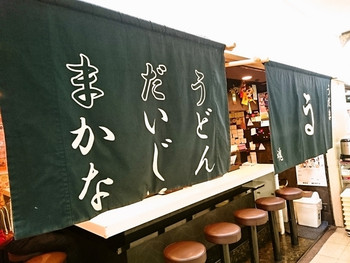 うどん
だいじ
まかな
う